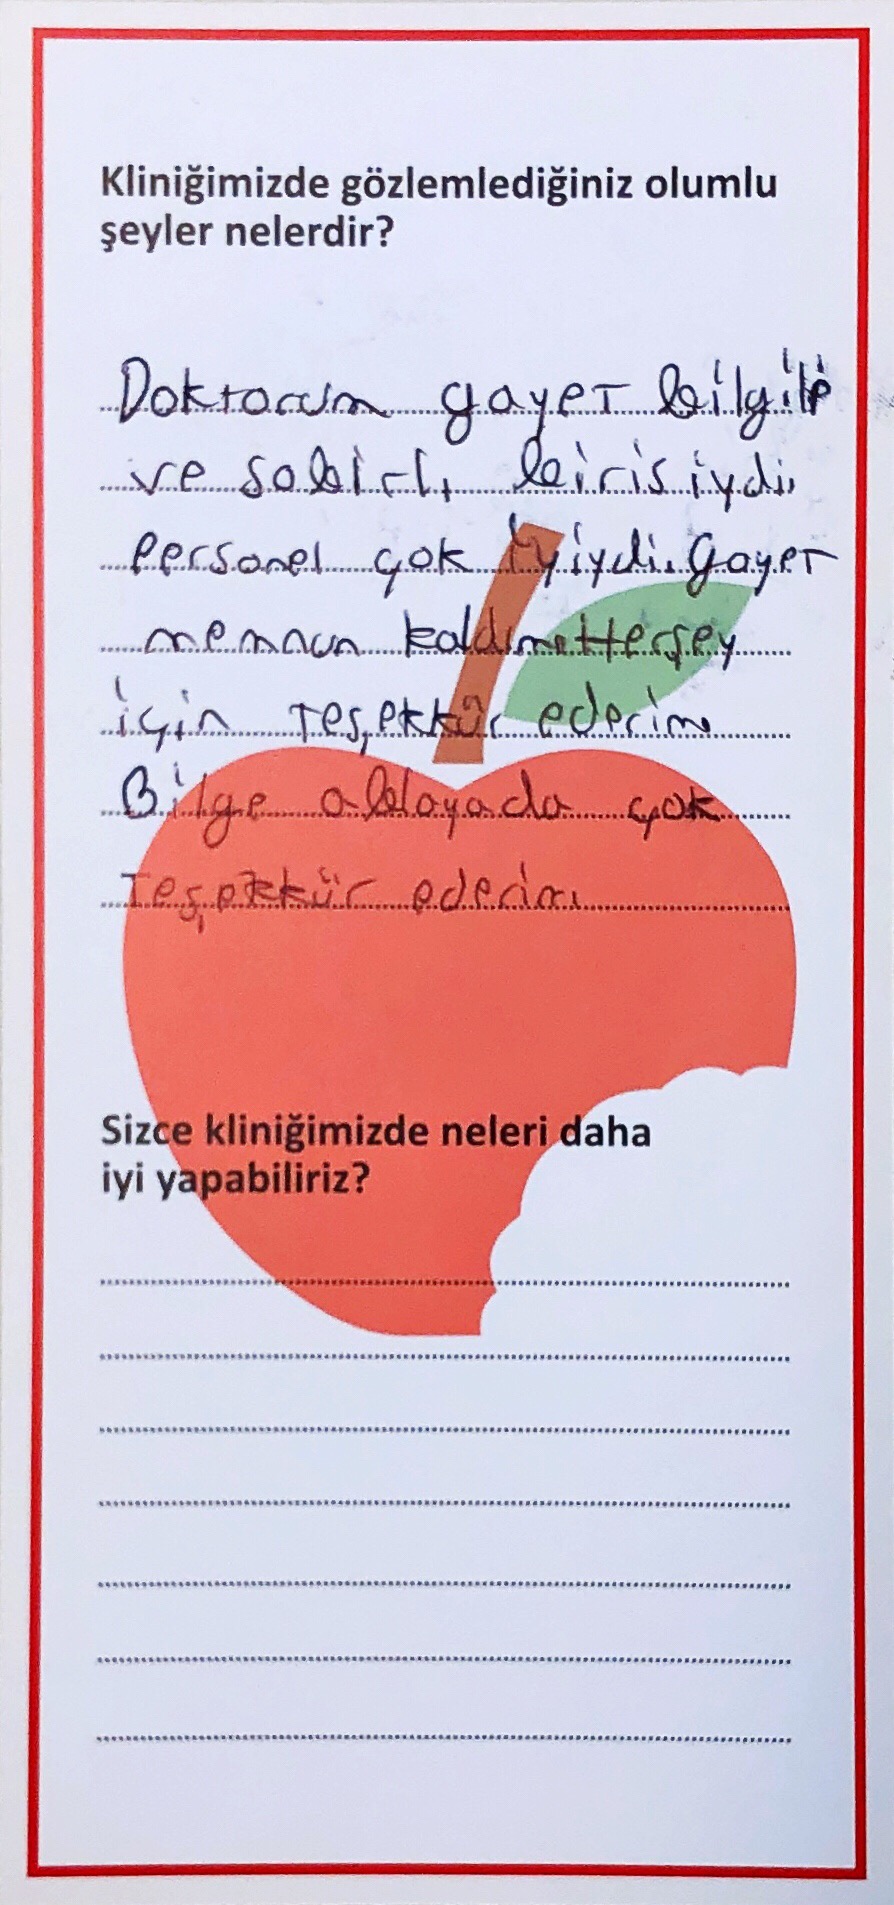 Kliniğimizde gözlemlediğiniz olumlu
şeyler nelerdir?
Doktorum gayet bilgili
ve sabırlı birisiydi.
Personel çok iyiydi. Gayet
memnun kaldım. Herşey
için teşekkür ederim
Bilge ablayada çok
teşekkür ederim
Sizce kliniğimizde neleri daha
iyi yapabiliriz?